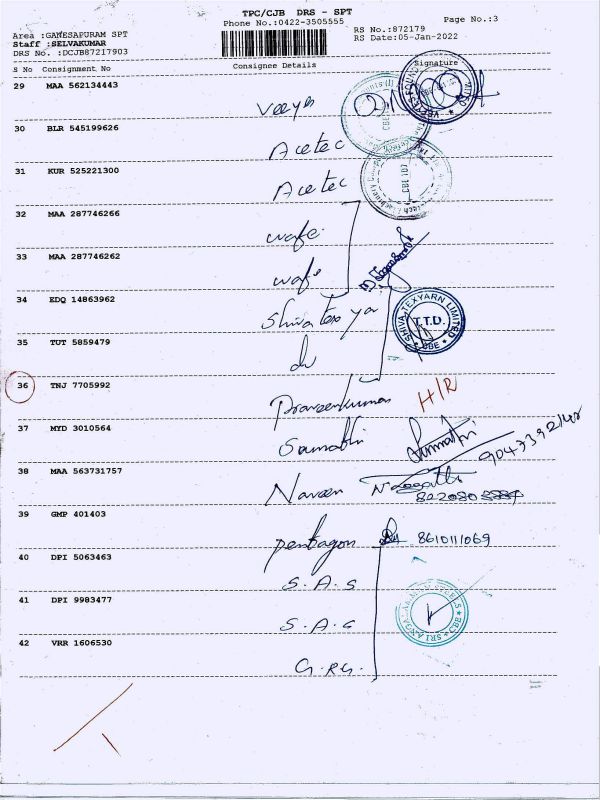 TPC/CJB DRS - SPT
Phone No.:0422-3505555
Page No.:3
Area :GANESAPURAM SPT
RS No.:872179
Staff :SELVAKUMAR
RS Date:05-Jan-2022
DRS No. :DCJB87217903
S No Consignment No Consignee Details Signature
29 MAA 562134443
30 BLR 545199626
Acetec
31 KUR 525221300
Acetec
32 MAA 287746266
wafe
33 MAA 287746262
wafe
34 EDQ 14863962
Shiva tex ya
SHIVA TEXYARN LIMITED
T.T.D.
* CBE *
35 TUT 5859479
36 TNJ 7705992
Praveenkumar H/R
37 MYD 3010564
Sumathi
38 MAA 563731757
Naveen
39 GMP 401403
pentagon 8610111069
40 DPI 5063463
S.A.S
41 DPI 9983477
S.A.S
42 VRR 1606530
G.RG.